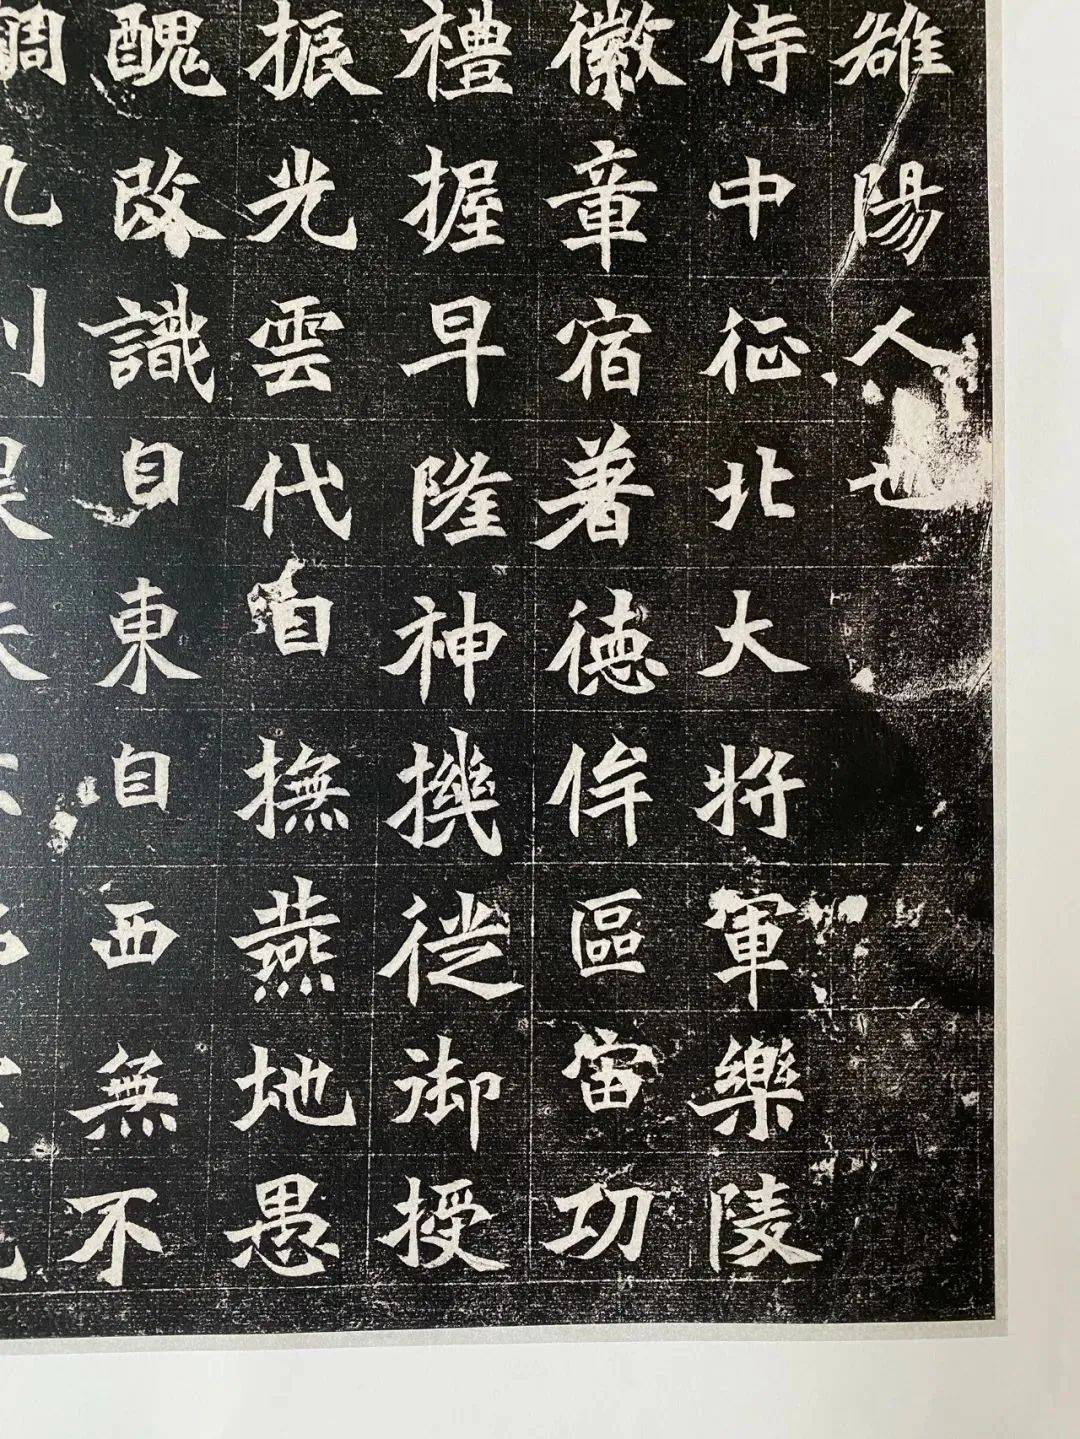 雒陽人也
侍中征北大将軍樂陵
徽章宿著德侔區宙功
禮握早隆神機徙御授
振光雲代自撫燕地愚
醜改識自東自西無不
調九